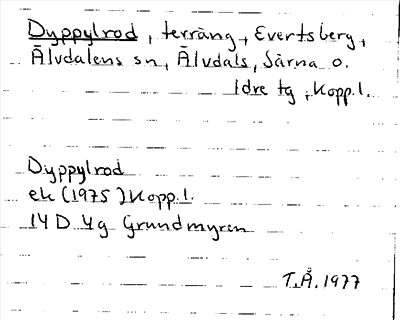 Dyppylrod, terräng, Evertsberg,
Älvdalens sn, Älvdals, Särna o.
Idre tg, Kopp.l.
Dyppylrod
ek (1975) Kopp.l.
14 D 4g Grundmyren
T.Å. 1977